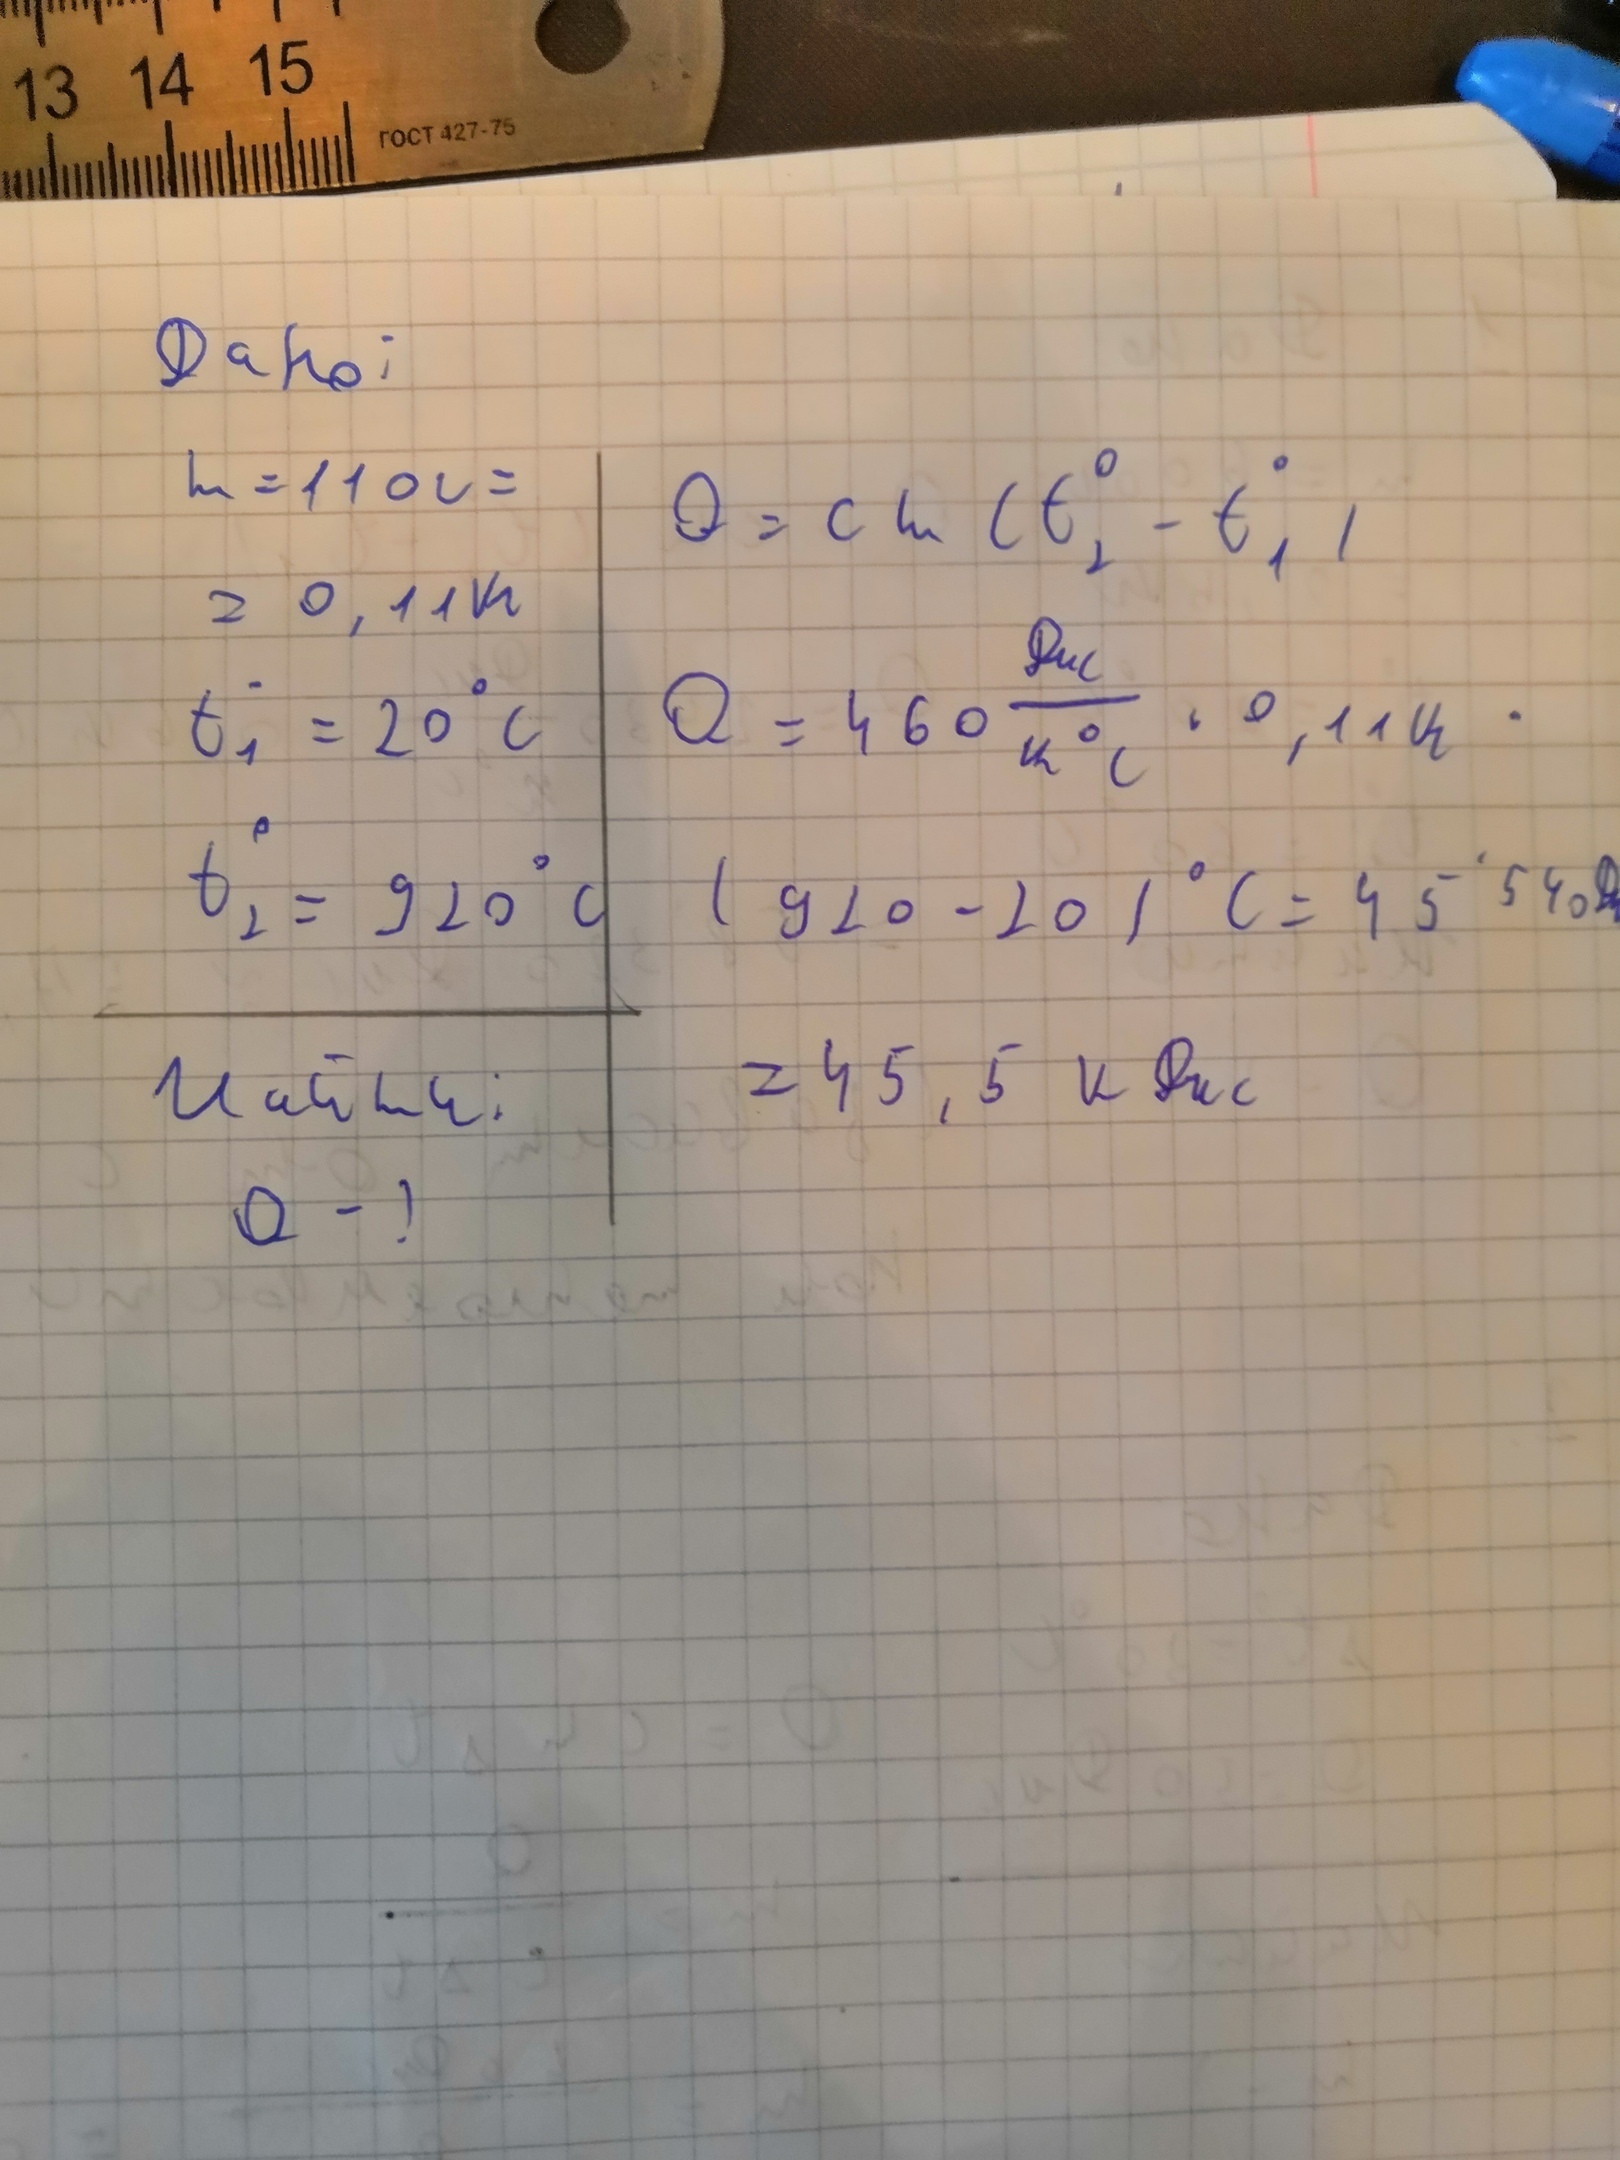 13 14 15
ГОСТ 427-75
Дано:
m = 110 г =
= 0,11 кг
t°₁ = 20°C
t°₂ = 920°C
Найти:
Q - ?
Q = cm (t°₂ - t°₁)
Q = 460 Дж/кг°C · 0,11 кг ·
(920 - 20)°C = 45'540 Дж
= 45,5 кДж